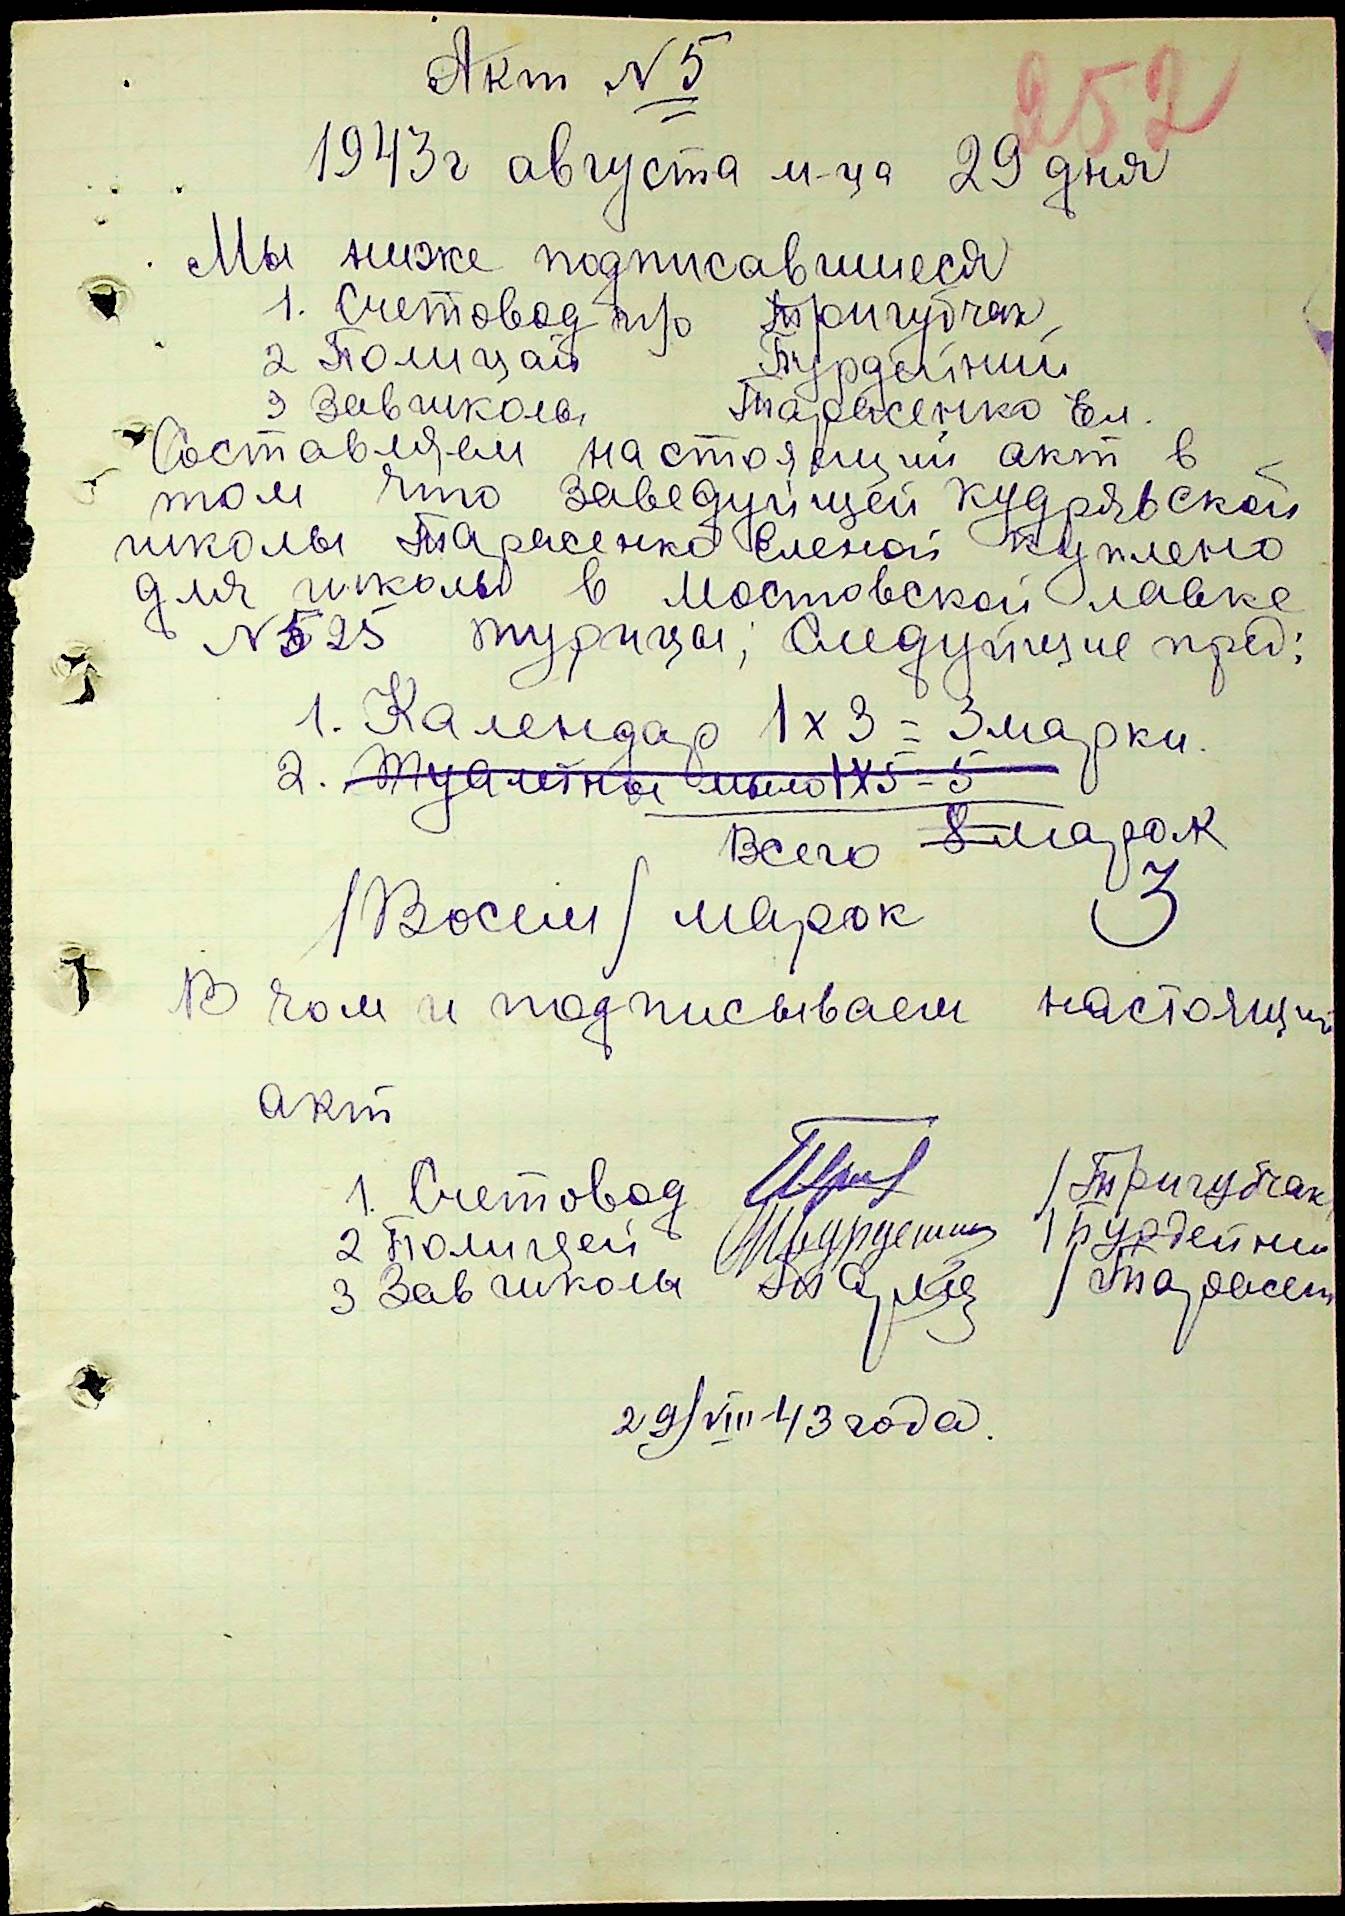 Акт № 5
252
1943 г августа м-ца 29 дня
Мы ниже подписавшиеся
1. Счетовод п/р Тригубчак
2 Полицай Бурдейний
3 Завшколы Тарасенко Ел.
Составляем настоящий акт в
том что Заведующей Кудрявской
школы Тарасенко Еленой куплено
для школы в Мостовской лавке
№ 525 турицы; Следующие пред:
1. Календар 1 х 3 = 3 марки.
2. Туалетны мыло 1 х 5 = 5
Всего 8 марок
3
/Восем/ марок
В чом и подписываем настоящий
акт
1. Счетовод /Тригубчак/
2 Полицей /Бурдейний
3 Зав школы /Тарасен
29/VIII-43 года.